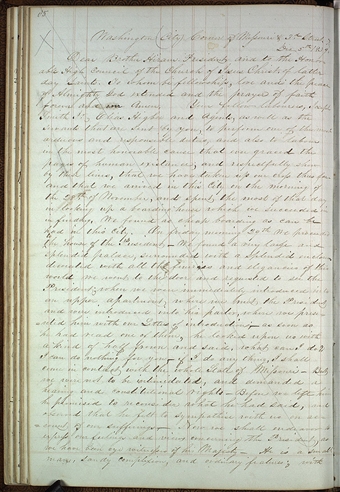 85
Washington City, Corner of Missouri & 3d Streets
Dec. 5th 1839
Dear Brother Hyrum President, and to the Honor-
able High Council of the Church of Jesus Christ of Latter
day Saints, to whom be fellowship, love, and the peace
of Almighty God extended and the prayer of faith
forever and ever Amen. Your fellow labourers, Joseph
Smith Jr, Elias Higbee and Agent, as well as the
servant that are sent by you, to perform one of the most
arduous and responsible duties, and also to labour
in the most honorable cause that ever graced the
pages of human existence, and respectfully show
by these lines, that we have taken up our cross thus far
and that we arrived in this City on the morning of
the 28th of November, and spent the most of that day
in looking up a boarding house which we succeeded
in finding. We found as cheap boarding as can be
had in this city. On friday morning 29th We proceeded
to the house of the President - We found a very large and
splendid palace, surrounded with a splendid enclosure
decorated with all the fineries and elegancies of this
world we went to the door and requested to see the
President, when we were immediately introduced into
an upper apartment, where we met the President
and were introduced into his parlor, where we presen-
ted him with our Letters of introduction; - as soon as
he had read one of them, he looked upon us with
a kind of half frown and said, what can I do?
I can do nothing for you, - if I do any thing, I shall
come in contact with the whole State of Missouri - But
we were not to be intimidated, and demanded a
hearing and constitutional rights - Before we left him
he promised to reconsider what he had said, and
observed that he felt to sympathize with us on acc-
ount of our sufferings - Now we shall endeavor to
express our feelings and views concerning the President, as
we have been eye witnesses of his Majesty - He is a small
man, sandy complexion, and ordinary features; with